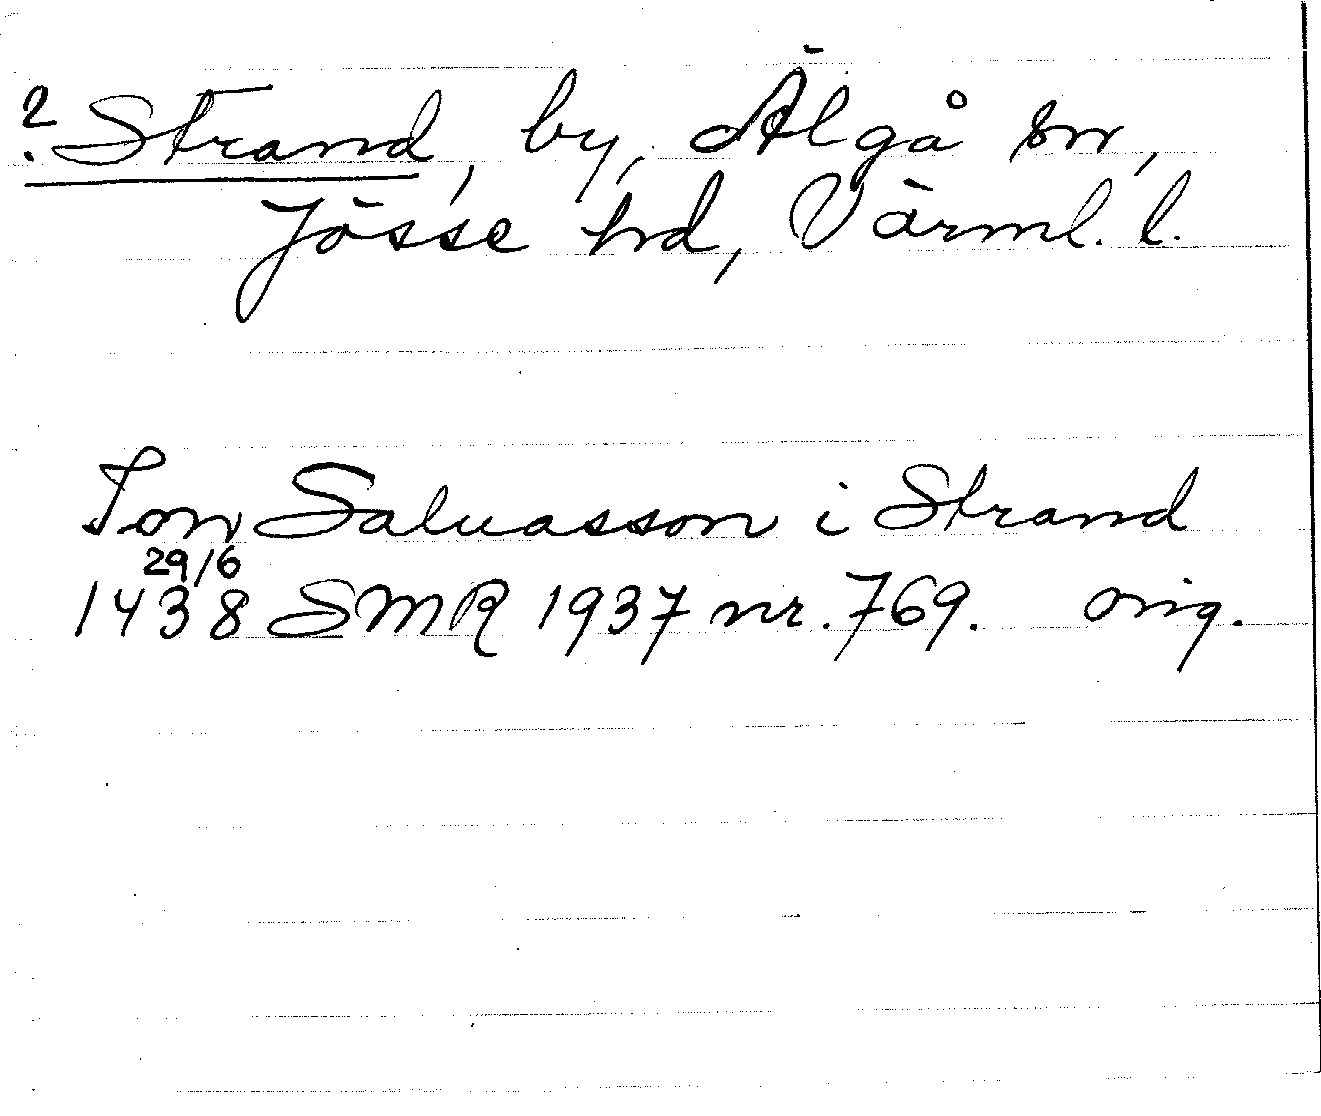 ? Strand, by, Älgå sn,
Jösse hd, Värml. l.
Jon Saluasson i Strand
29/6
1438 SMR 1937 nr. 769. orig.